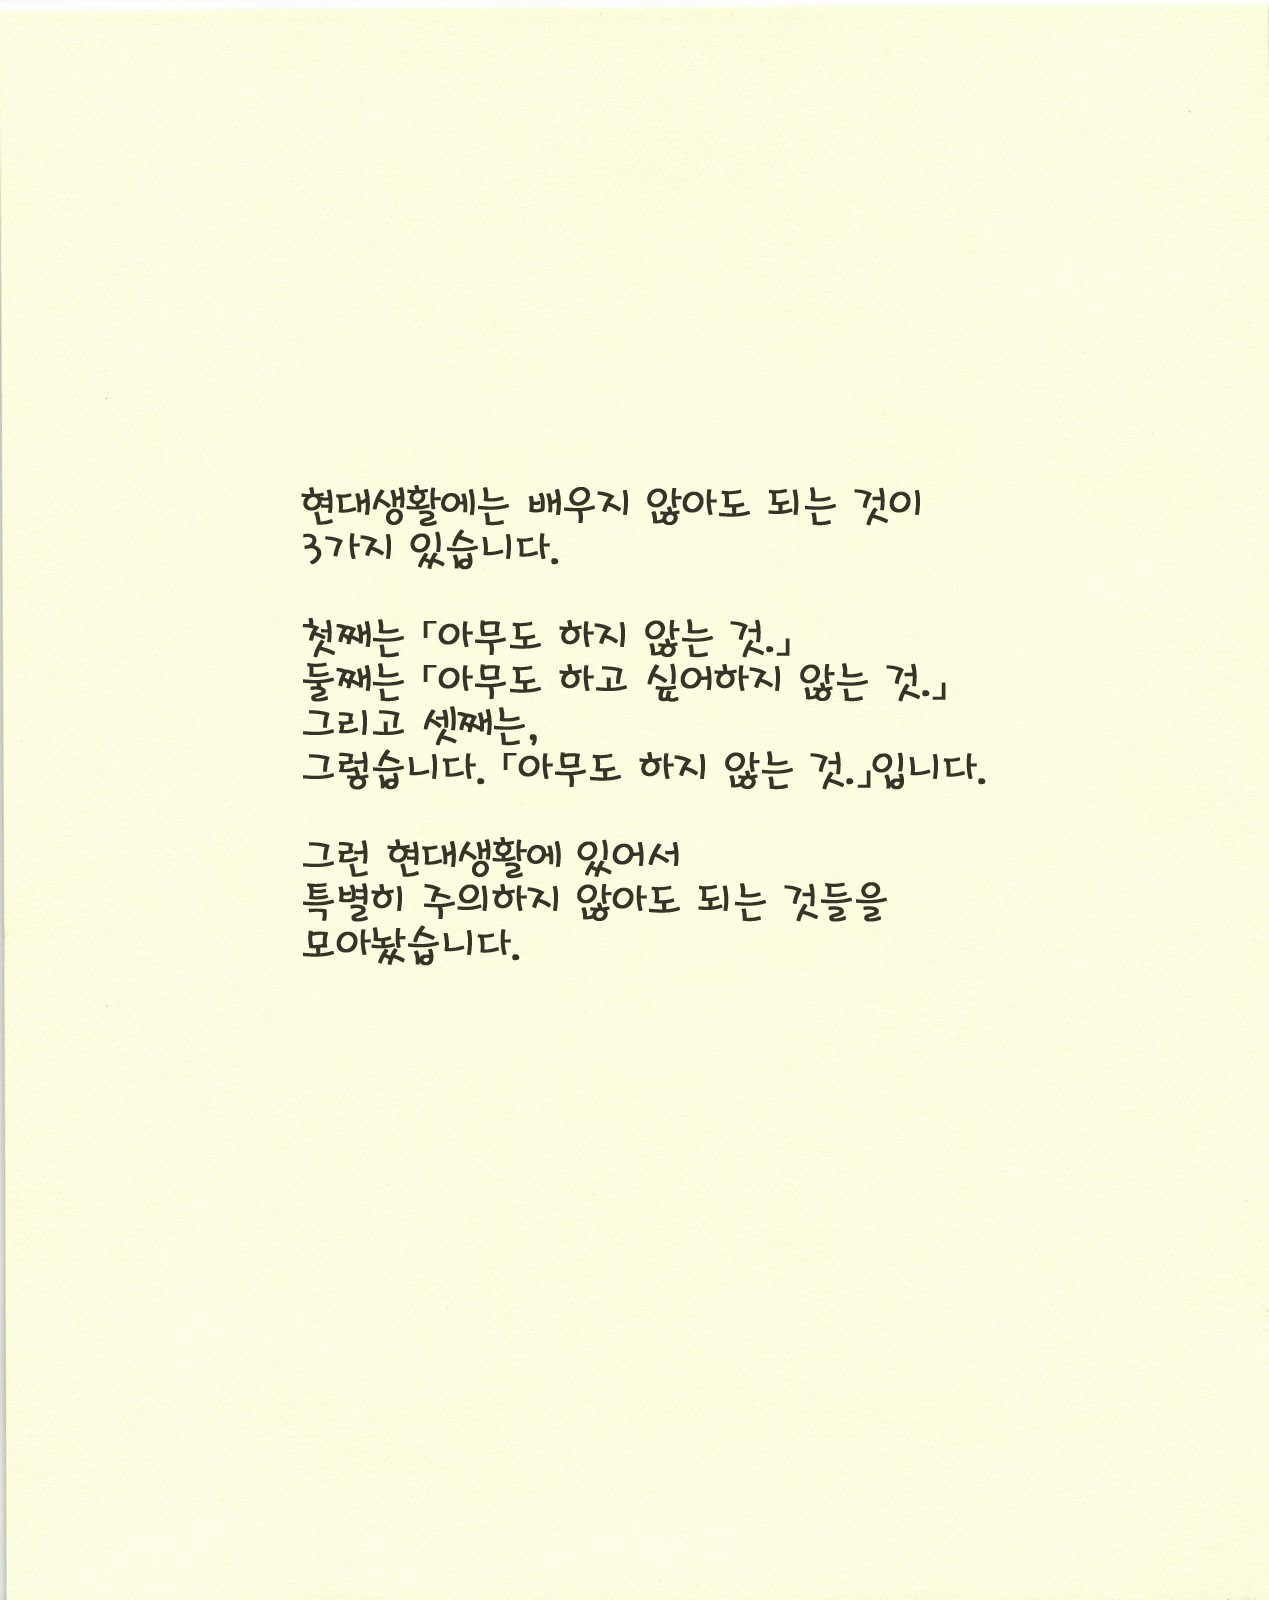 현대생활에는 배우지 않아도 되는 것이
3가지 있습니다.
첫째는 「아무도 하지 않는 것.」
둘째는 「아무도 하고 싶어하지 않는 것.」
그리고 셋째는,
그렇습니다. 「아무도 하지 않는 것.」입니다.
그런 현대생활에 있어서
특별히 주의하지 않아도 되는 것들을
모아놨습니다.